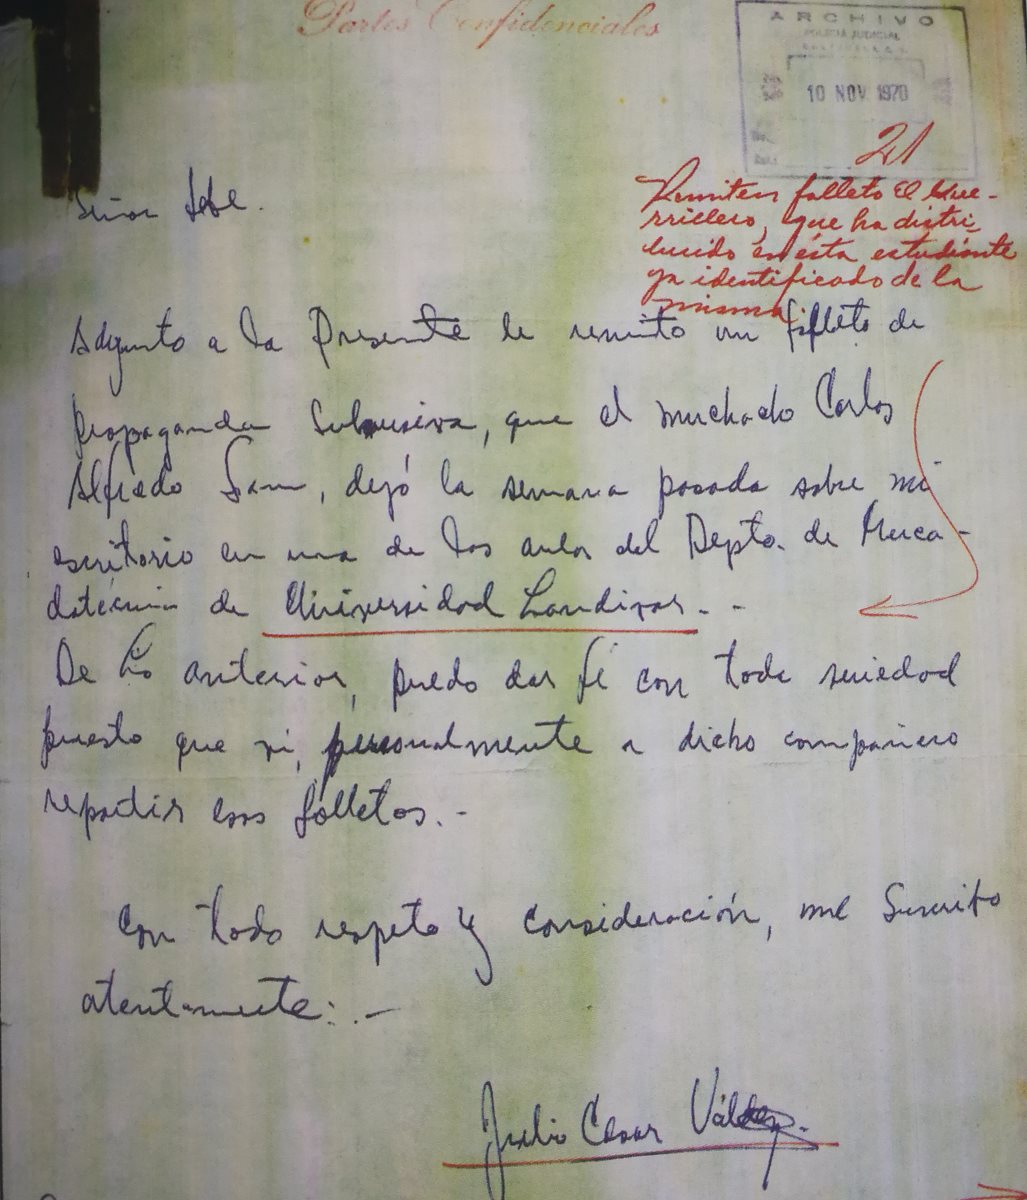 Partes Confidenciales
ARCHIVO
POLICIA JUDICIAL
10 NOV. 1970
21
Remiten folleto El Gue-
rrillero, que ha distri-
buido en ésta estudiante
ya identificado de la
misma
Señor Jefe.
Adjunto a la Presente le remito un folleto de
propaganda Subversiva, que el muchacho Carlos
Alfredo, dejó la semana pasada sobre mi
escritorio en una de las aulas del Depto. de Merca-
dotécnia de Universidad Landivar. -
De lo anterior, puedo dar fé con toda seriedad
puesto que ví, personalmente a dicho compañero
repartir esos folletos. -
Con todo respeto y consideración, me Suscribo
atentamente: . -
Julio César Váldez.